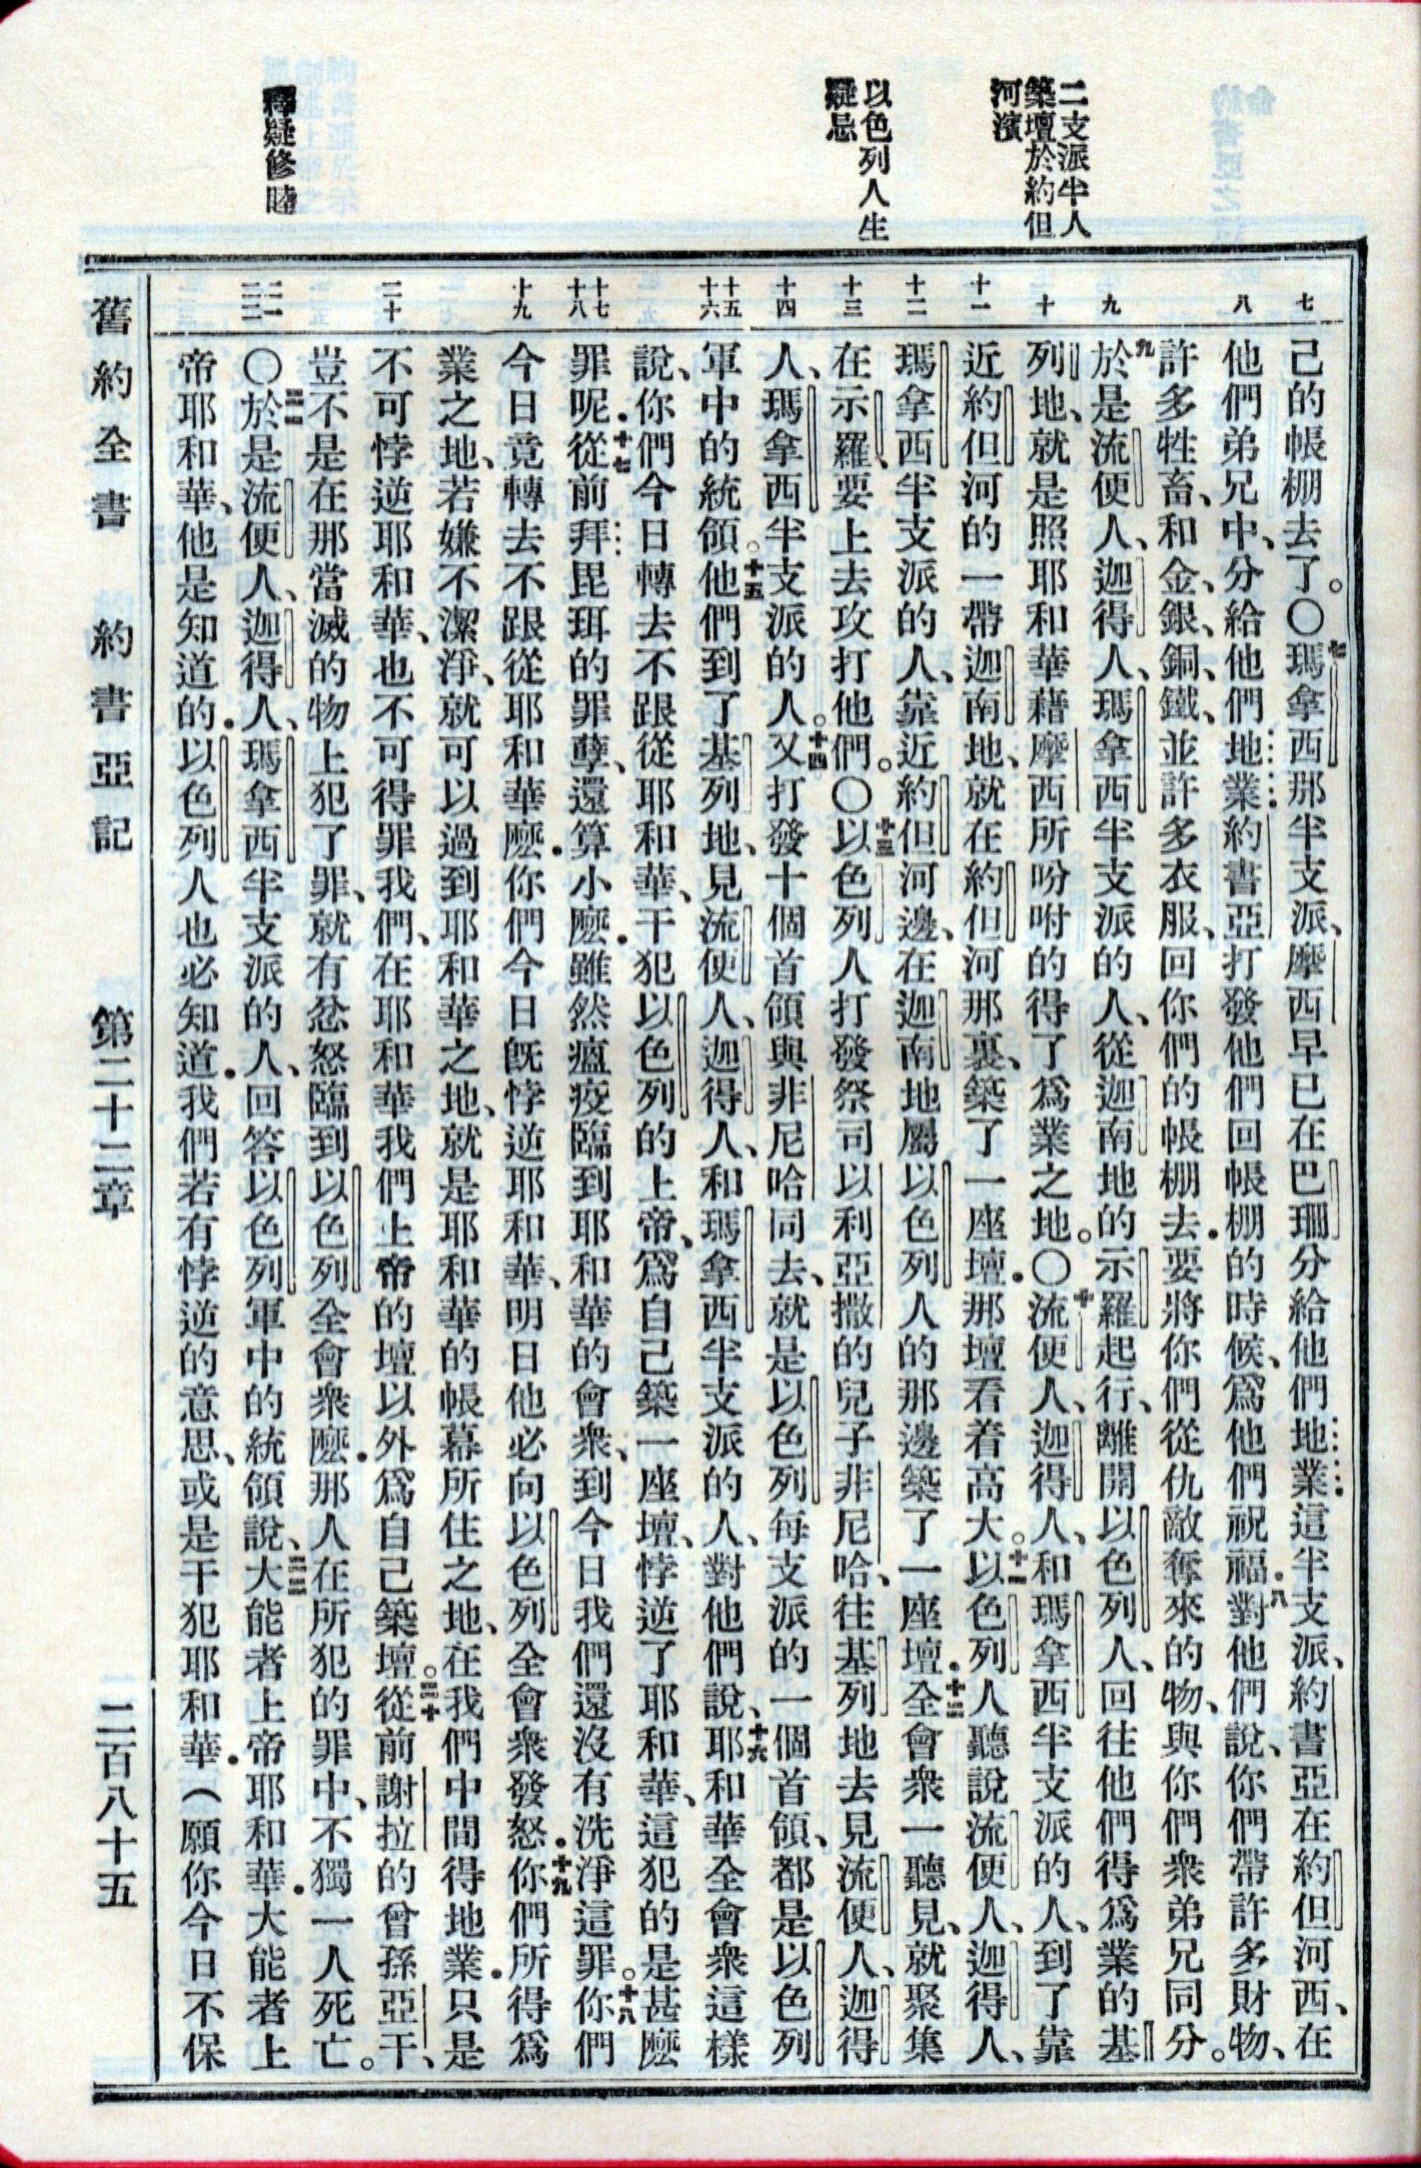 二支派半人
築壇於約但
河濱
以色列人生
疑忌
釋疑修睦
七
八
九
十
十一
十二
十三
十四
十五
十六
十七
十八
十九
二十
二一
二二
己的帳棚去了。〇七瑪拿西那半支派、摩西早已在巴珊分給他們地業這半支派、約書亞在約但河西、在
他們弟兄中、分給他們地業．約書亞打發他們回帳棚的時候、爲他們祝福．八對他們說、你們帶許多財物、
許多牲畜、和金、銀、銅、鐵、並許多衣服、回你們的帳棚去．要將你們從仇敵奪來的物、與你們衆弟兄同分。
九於是流便人、迦得人、瑪拿西半支派的人、從迦南地的示羅起行、離開以色列人、回往他們得爲業的基
列地、就是照耶和華藉摩西所吩咐的得了爲業之地。〇十流便人、迦得人、和瑪拿西半支派的人、到了靠
近約但河的一帶迦南地、就在約但河那裏、築了一座壇．那壇看着高大。十一以色列人聽說流便人、迦得人、
瑪拿西半支派的人、靠近約但河邊、在迦南地屬以色列人的那邊築了一座壇．十二全會衆一聽見、就聚集
在示羅、要上去攻打他們。〇十三以色列人打發祭司以利亞撒的兒子非尼哈、往基列地去見流便人、迦得
人、瑪拿西半支派的人。十四又打發十個首領與非尼哈同去、就是以色列每支派的一個首領、都是以色列
軍中的統領。十五他們到了基列地、見流便人、迦得人、和瑪拿西半支派的人、對他們說、十六耶和華全會衆這樣
說、你們今日轉去不跟從耶和華、干犯以色列的上帝、爲自己築一座壇、悖逆了耶和華、這犯的是甚麽
罪呢．十七從前拜毘珥的罪孽、還算小麽．雖然瘟疫臨到耶和華的會衆、到今日我們還沒有洗淨這罪。十八你們
今日竟轉去不跟從耶和華麽．你們今日旣悖逆耶和華、明日他必向以色列全會衆發怒．十九你們所得爲
業之地、若嫌不潔淨、就可以過到耶和華之地、就是耶和華的帳幕所住之地、在我們中間得地業．只是
不可悖逆耶和華、也不可得罪我們、在耶和華我們上帝的壇以外爲自己築壇。二十從前謝拉的曾孫亞干、
豈不是在那當滅的物上犯了罪、就有忿怒臨到以色列全會衆麽．那人在所犯的罪中、不獨一人死亡。
〇二一於是流便人、迦得人、瑪拿西半支派的人、回答以色列軍中的統領說、二二大能者上帝耶和華．大能者上
帝耶和華、他是知道的．以色列人也必知道．我們若有悖逆的意思、或是干犯耶和華．（願你今日不保
舊約全書　約書亞記　第二十二章　二百八十五